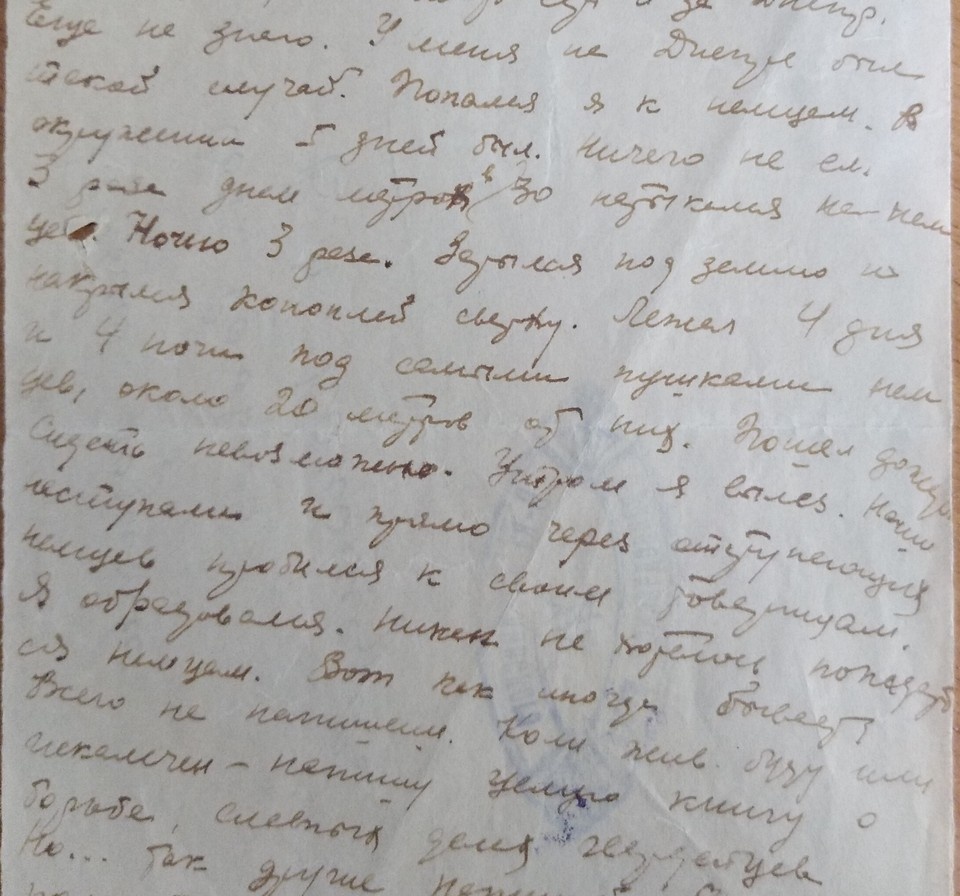 и за Днепр.
Еще не знаю. У меня на Днепре был
такой случай. Попался я к немцам. В
окружении 5 дней был. Ничего не ел.
3 раза днем метров в 30 натыкался на нем
цев. Ночью 3 раза. Зарылся под землю и
накрылся коноплей сверху. Лежал 4 дня
и 4 ночи под самыми пушками нем
цев, около 20 метров от них. Пошел дождь
Сидеть невозможно. Утром я вылез. Наши
наступали и прямо через отступающих
немцев пробился к своим товарищам.
Я обрадовался. Никак не хотелось попадать
ся немцам. Вот как иногда бывает.
Всего не напишешь. Коли жив буду или
искалечен – напишу целую книгу о
борьбе, славных делах гвардейцев
Но... так другие